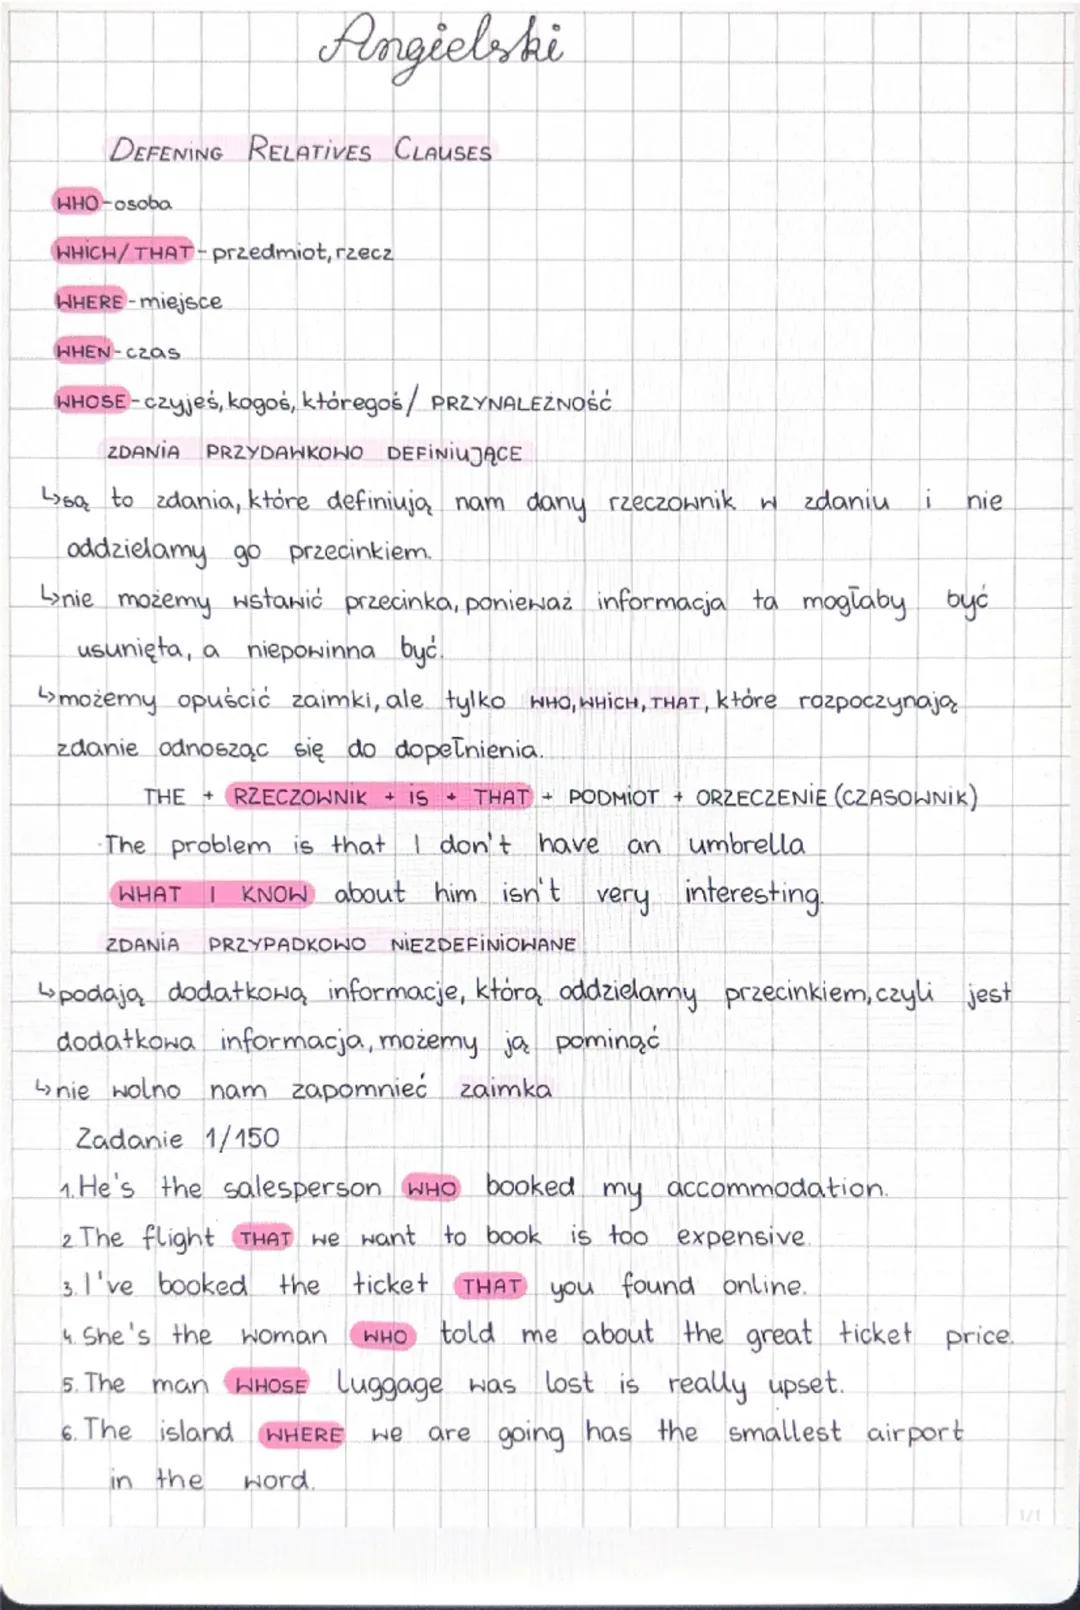 Angielski
DEFENING RELATIVES CLAUSES
WHO-osoba
WHICH/THAT-przedmiot, rzecz
WHERE-miejsce
WHEN-czas
WHOSE-czyjeś, kogoś, któregoś/ PRZYNALEŻNOŚĆ
ZDANIA PRZYDAWKOWO DEFINIUJĄCE
↳są to zdania, które definiują nam dany rzeczownik w zdaniu i nie
oddzielamy go przecinkiem.
↳nie możemy wstawić przecinka, ponieważ informacja ta mogłaby być
usunięta, a niepowinna być.
↳możemy opuścić zaimki, ale tylko WHO, WHICH, THAT, które rozpoczynają
zdanie odnosząc się do dopełnienia.
THE + RZECZOWNIK + IS + THAT + PODMIOT + ORZECZENIE (CZASOWNIK)
The problem is that I don't have an umbrella
WHAT I KNOW about him isn't very interesting.
ZDANIA PRZYPADKOWO NIEZDEFINIOWANE
↳podają dodatkową informacje, którą oddzielamy przecinkiem, czyli jest
dodatkowa informacja, możemy ją pominąć
↳nie wolno nam zapomnieć zaimka
Zadanie 1/150
1. He's the salesperson WHO booked my accommodation.
2 The flight THAT we want to book is too expensive.
3. I've booked the ticket THAT you found online.
4. She's the woman WHO told me about the great ticket price.
5. The man WHOSE luggage was lost is really upset.
6. The island WHERE we are going has the smallest airport
in the word.
1/1